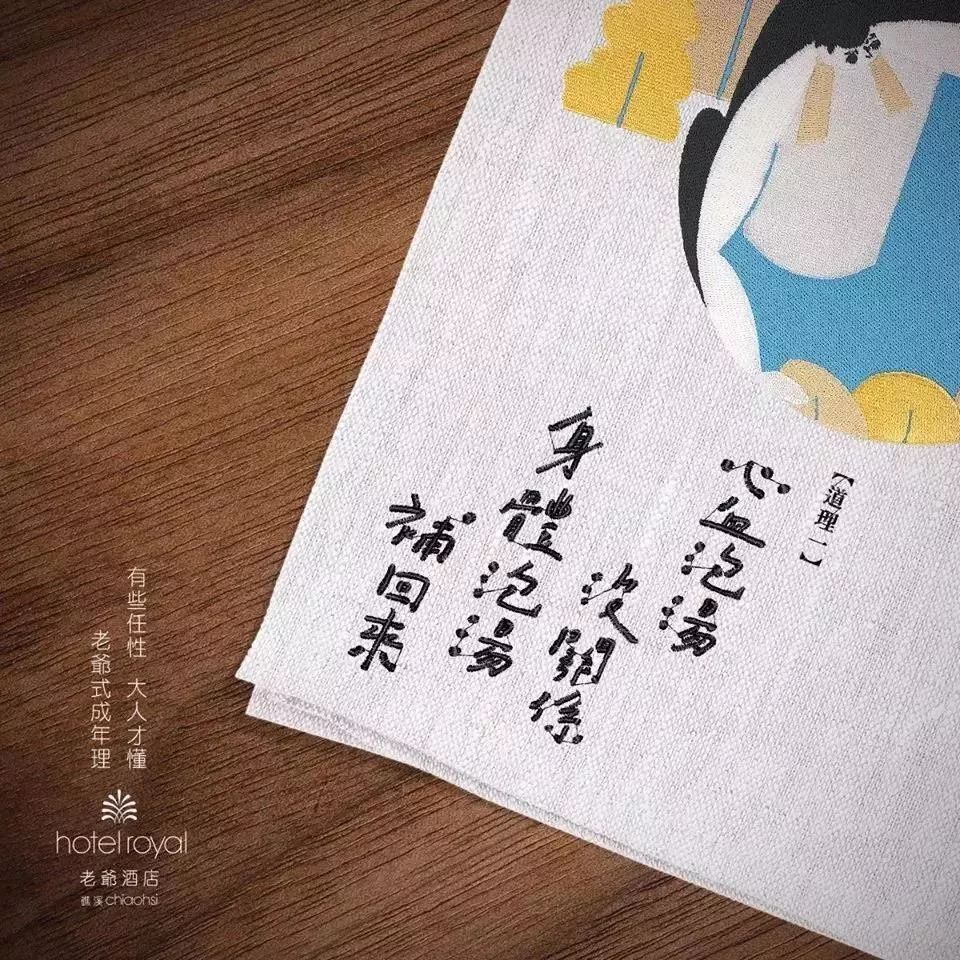 【道理一】
心血泡湯
沒關係
身體泡湯
補回來
有些任性 大人才懂
老爺式成年理
hotel royal
老爺酒店
礁溪 chiaohsi